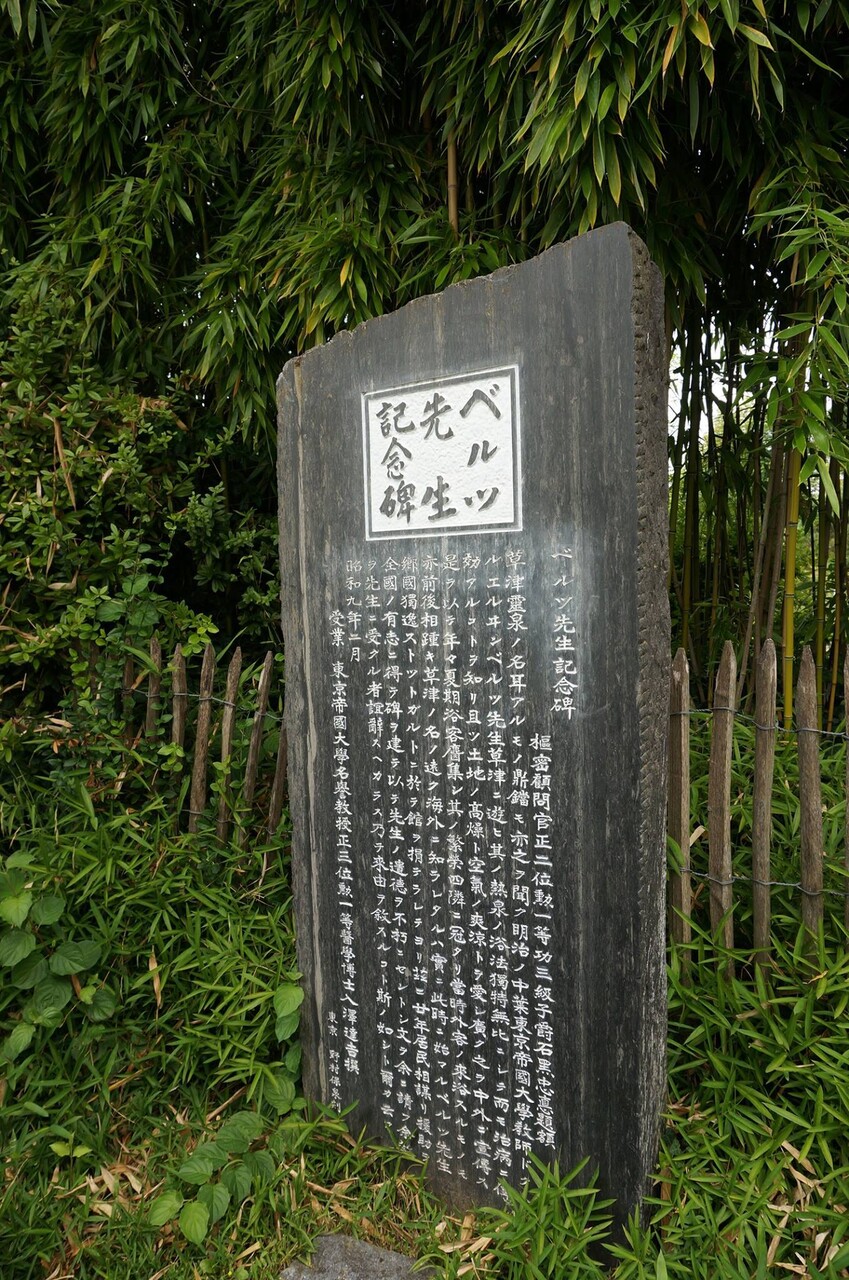 ベルツ
先生
記念碑
ベルツ先生記念碑
樞密顧問官正二位勳一等功三級子爵石黑忠悳題額
草津靈泉ノ名耳アルモノ鼎鐺モ亦之ヲ聞ク明治ノ中葉東京帝國大學教師ドク
ルエルヰンベルツ先生草津ニ遊ヒ其ノ熱泉ノ浴法獨特無比ニシテ而モ治病ニ偉
効アルコトヲ知リ且ツ土地ノ高燥ト空氣ノ爽涼トヲ愛シ廣ク之ヲ中外ニ宣傳ス
是ヲ以テ年々夏期浴客麕集シ其ノ繁榮四隣ニ冠タリ當時外客ノ來浴スルモノモ
亦前後相踵キ草津ノ名ノ遠ク海外ニ知ラレタルハ實ニ此時ニ始マルベルツ先生
鄕國獨逸ストツトガルトニ於テ館ヲ捐テラレテヨリ茲ニ廿年居民相謀リ援助ヲ
全國ノ有志ニ得テ碑ヲ建テ以テ先生ノ遺德ヲ不朽ニセントシ文ヲ余ニ請フ余
ヲ先生ニ受クル者誼辭スヘカラス乃チ來由ヲ敘スルコト斯ノ如シト爾カ云
昭和九年二月
受業 東京帝國大學名譽教授正三位勳一等醫學博士入澤達吉撰
東京 野村保泉刻